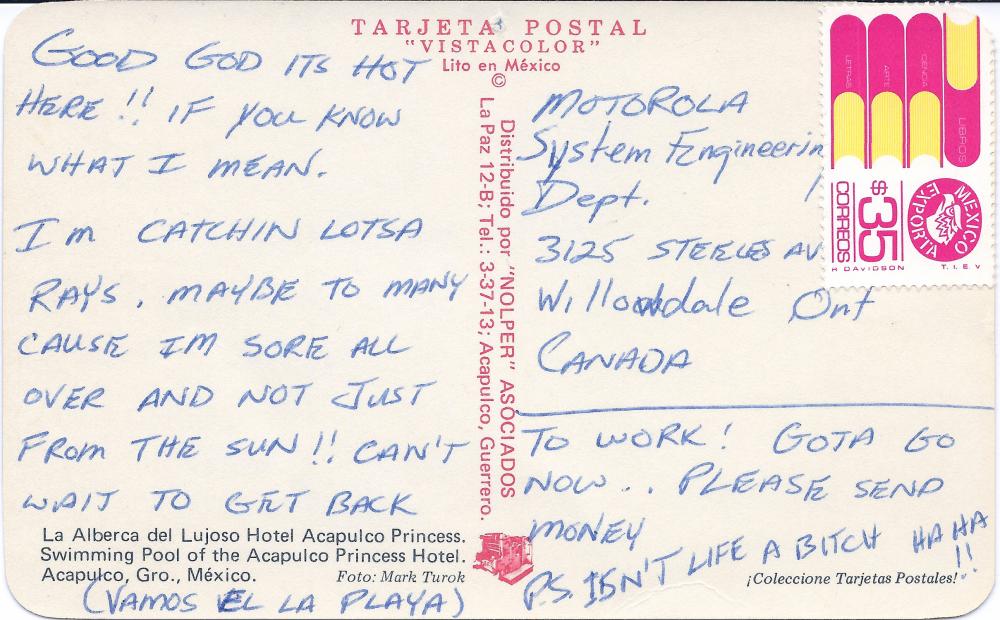 TARJETA POSTAL
"VISTACOLOR"
Lito en México
©
GOOD GOD ITS HOT
HERE!! IF YOU KNOW
WHAT I MEAN.
I'm CATCHIN LOTSA
RAYS. MAYBE TO MANY
CAUSE IM SORE ALL
OVER AND NOT JUST
FROM THE SUN!! CAN'T
WAIT TO GET BACK
La Alberca del Lujoso Hotel Acapulco Princess.
Swimming Pool of the Acapulco Princess Hotel.
Acapulco, Gro., México.
Foto: Mark Turok
(VAMOS EL LA PLAYA)
Distribuido por "NOLPER" ASOCIADOS
La Paz 12-B; Tel.: 3-37-13; Acapulco, Guerrero.
MOTOROLA
System Engineerin
Dept.
3125 STEELES AV
Willowdale Ont
CANADA
TO WORK! GOTA GO
NOW.. PLEASE SEND
MONEY
P.S. ISN'T LIFE A BITCH HA HA
!!
¡Coleccione Tarjetas Postales!
LETRAS
ARTE
CIENCIA
LIBROS
MEXICO
EXPORTA
$35
CORREOS
R DAVIDSON
T.I.E.V